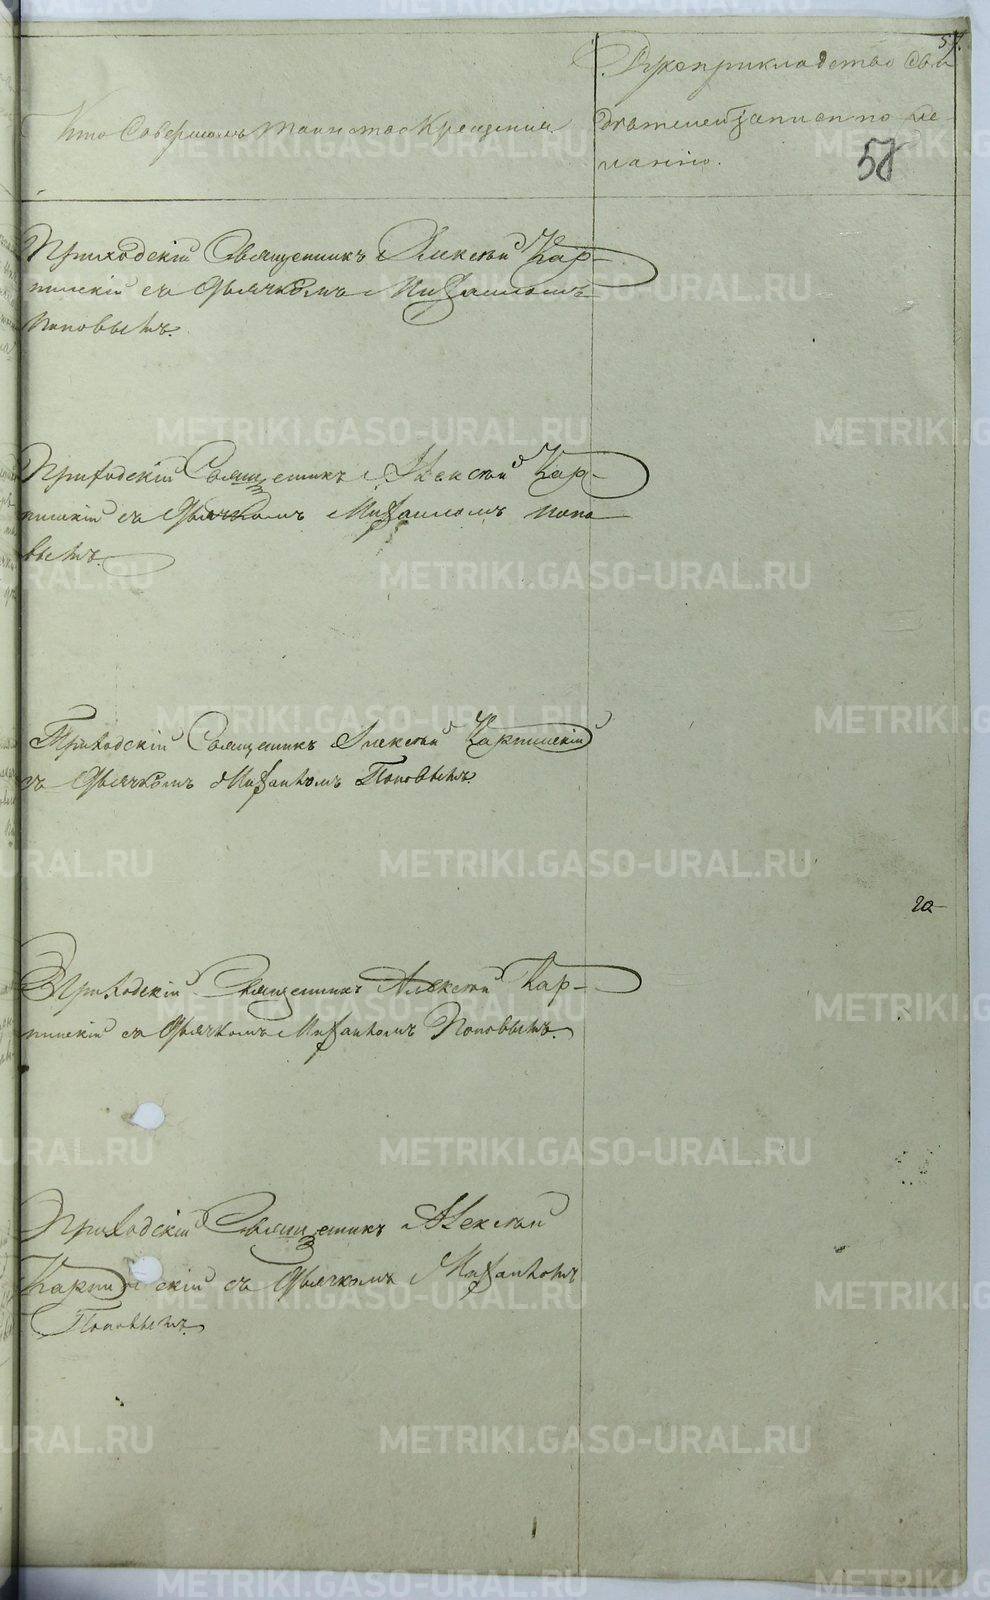 57.
Кто совершалъ таинство Крещенія.
Рукоприкладство сви
дѣтелей записи по же-
ланію.
58
Приходскій Священникъ Алексѣй Кар-
пинскій съ Дьячкомъ Михаиломъ
Поповымъ.
Приходскій Священникъ Алексѣй Кар-
пинскій съ Дьячкомъ Михаиломъ Попо
вымъ.
Приходскій Священникъ Алексѣй Карпинскій
съ Дьячкомъ Михаиломъ Поповымъ.
га
Приходскій Священникъ Алексѣй Кар-
пинскій съ Дьячкомъ Михаиломъ Поповымъ.
Приходскій Священникъ Алексѣй
Карпинскій съ Дьячкомъ Михаиломъ
Поповымъ.
METRIKI.GASO-URAL.RU